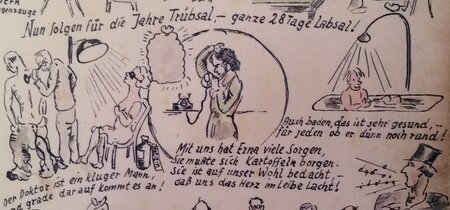 EFA
genzeuge
Nun folgen für die Jahre Trübsal, – ganze 28 Tage Labsal!
Auch baden, das ist sehr gesund, –
für jeden ob er dünn noch rund!
Mit uns hat Erna viele Sorgen,
Sie mußte sich Kartoffeln borgen.
Sie ist auf unser Wohl bedacht, –
daß uns das Herz im Leibe lacht!
Der Doktor ist ein kluger Mann,
nd grade darauf kommt es an!